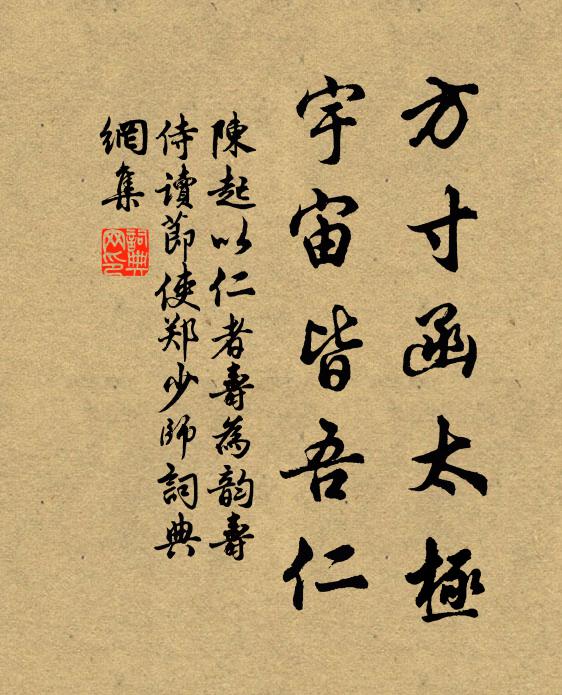 方寸函太極
宇宙皆吾仁
陳起以仁者壽為韵壽
侍讀節使郑少師詞典
網集
詞典網印